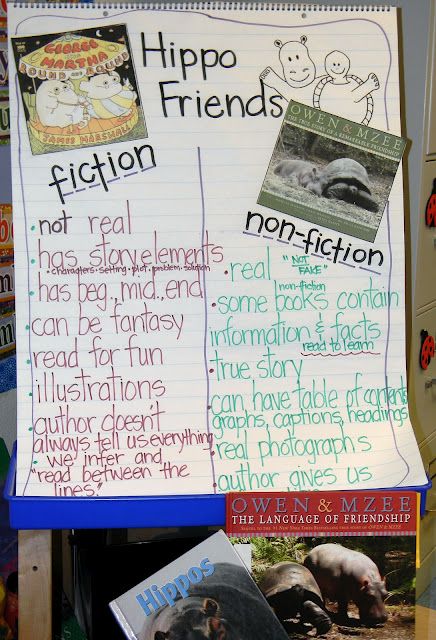 GEORGE
AND
MARTHA
ROUND AND ROUND
JAMES MARSHALL
Hippo
Friends
OWEN & MZEE
THE TRUE STORY OF A REMARKABLE FRIENDSHIP
fiction
not real
has story elements
• characters • setting • plot • problem • solution
has beg., mid., end
can be fantasy
read for fun
illustrations
author doesn't
always tell us everything
we infer and
"read between the
lines."
non-fiction
real "NOT
FAKE"
non-fiction
some books contain
information & facts
read to learn
true story
can have table of contents
graphs, captions, headings
real photographs
author gives us
OWEN & MZEE
THE LANGUAGE OF FRIENDSHIP
Hippos